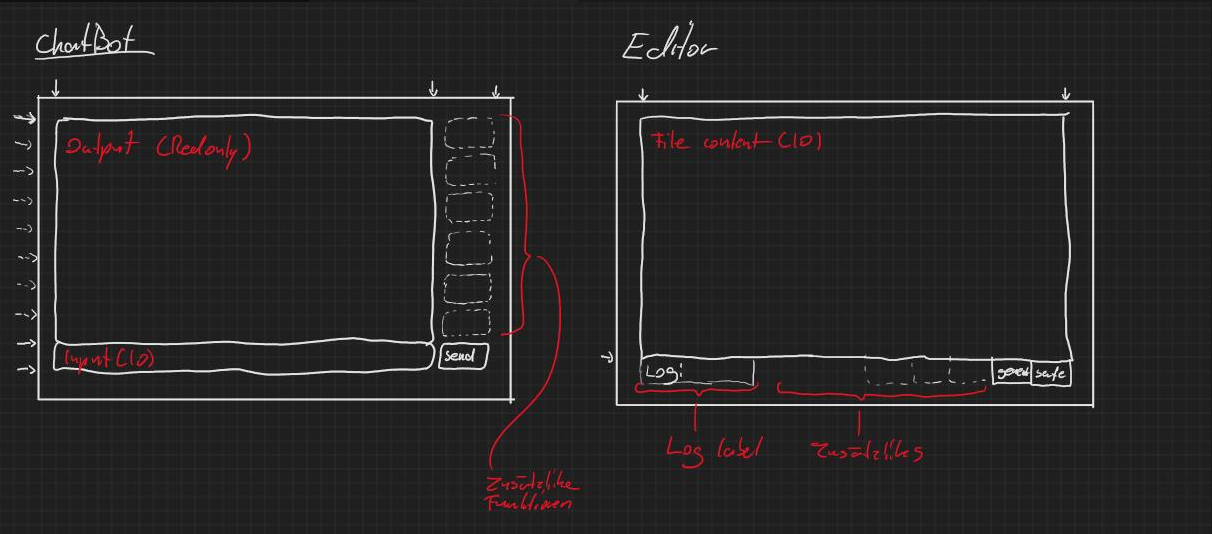 ChatBot
Output (Redonly)
Input (IO)
send
Zusätzlike
Funktionen
Editor
File content (IO)
Log:
safe
Log label
Zusätzlikes